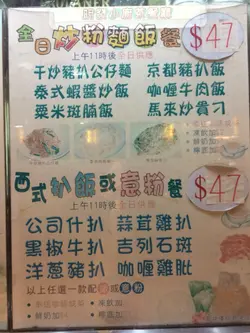 全日炒粉麵飯餐 $47
上午11時後全日供應
干炒豬扒公仔麵 京都豬扒飯
泰式蝦醬炒飯 咖喱牛肉飯
粟米斑腩飯 馬來炒貴刁
西式扒飯或意粉餐 $47
上午11時後全日供應
公司什扒 蒜茸雞扒
黑椒牛扒 吉列石斑
洋蔥豬扒 咖喱雞肶
以上任選一款配 或意粉
凍飲加
鮮奶加